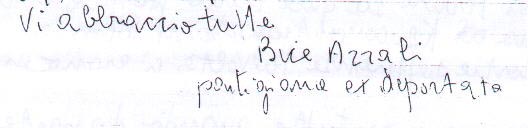 Vi abbraccio tutte
Bice Azzali
partigiana ex deportata